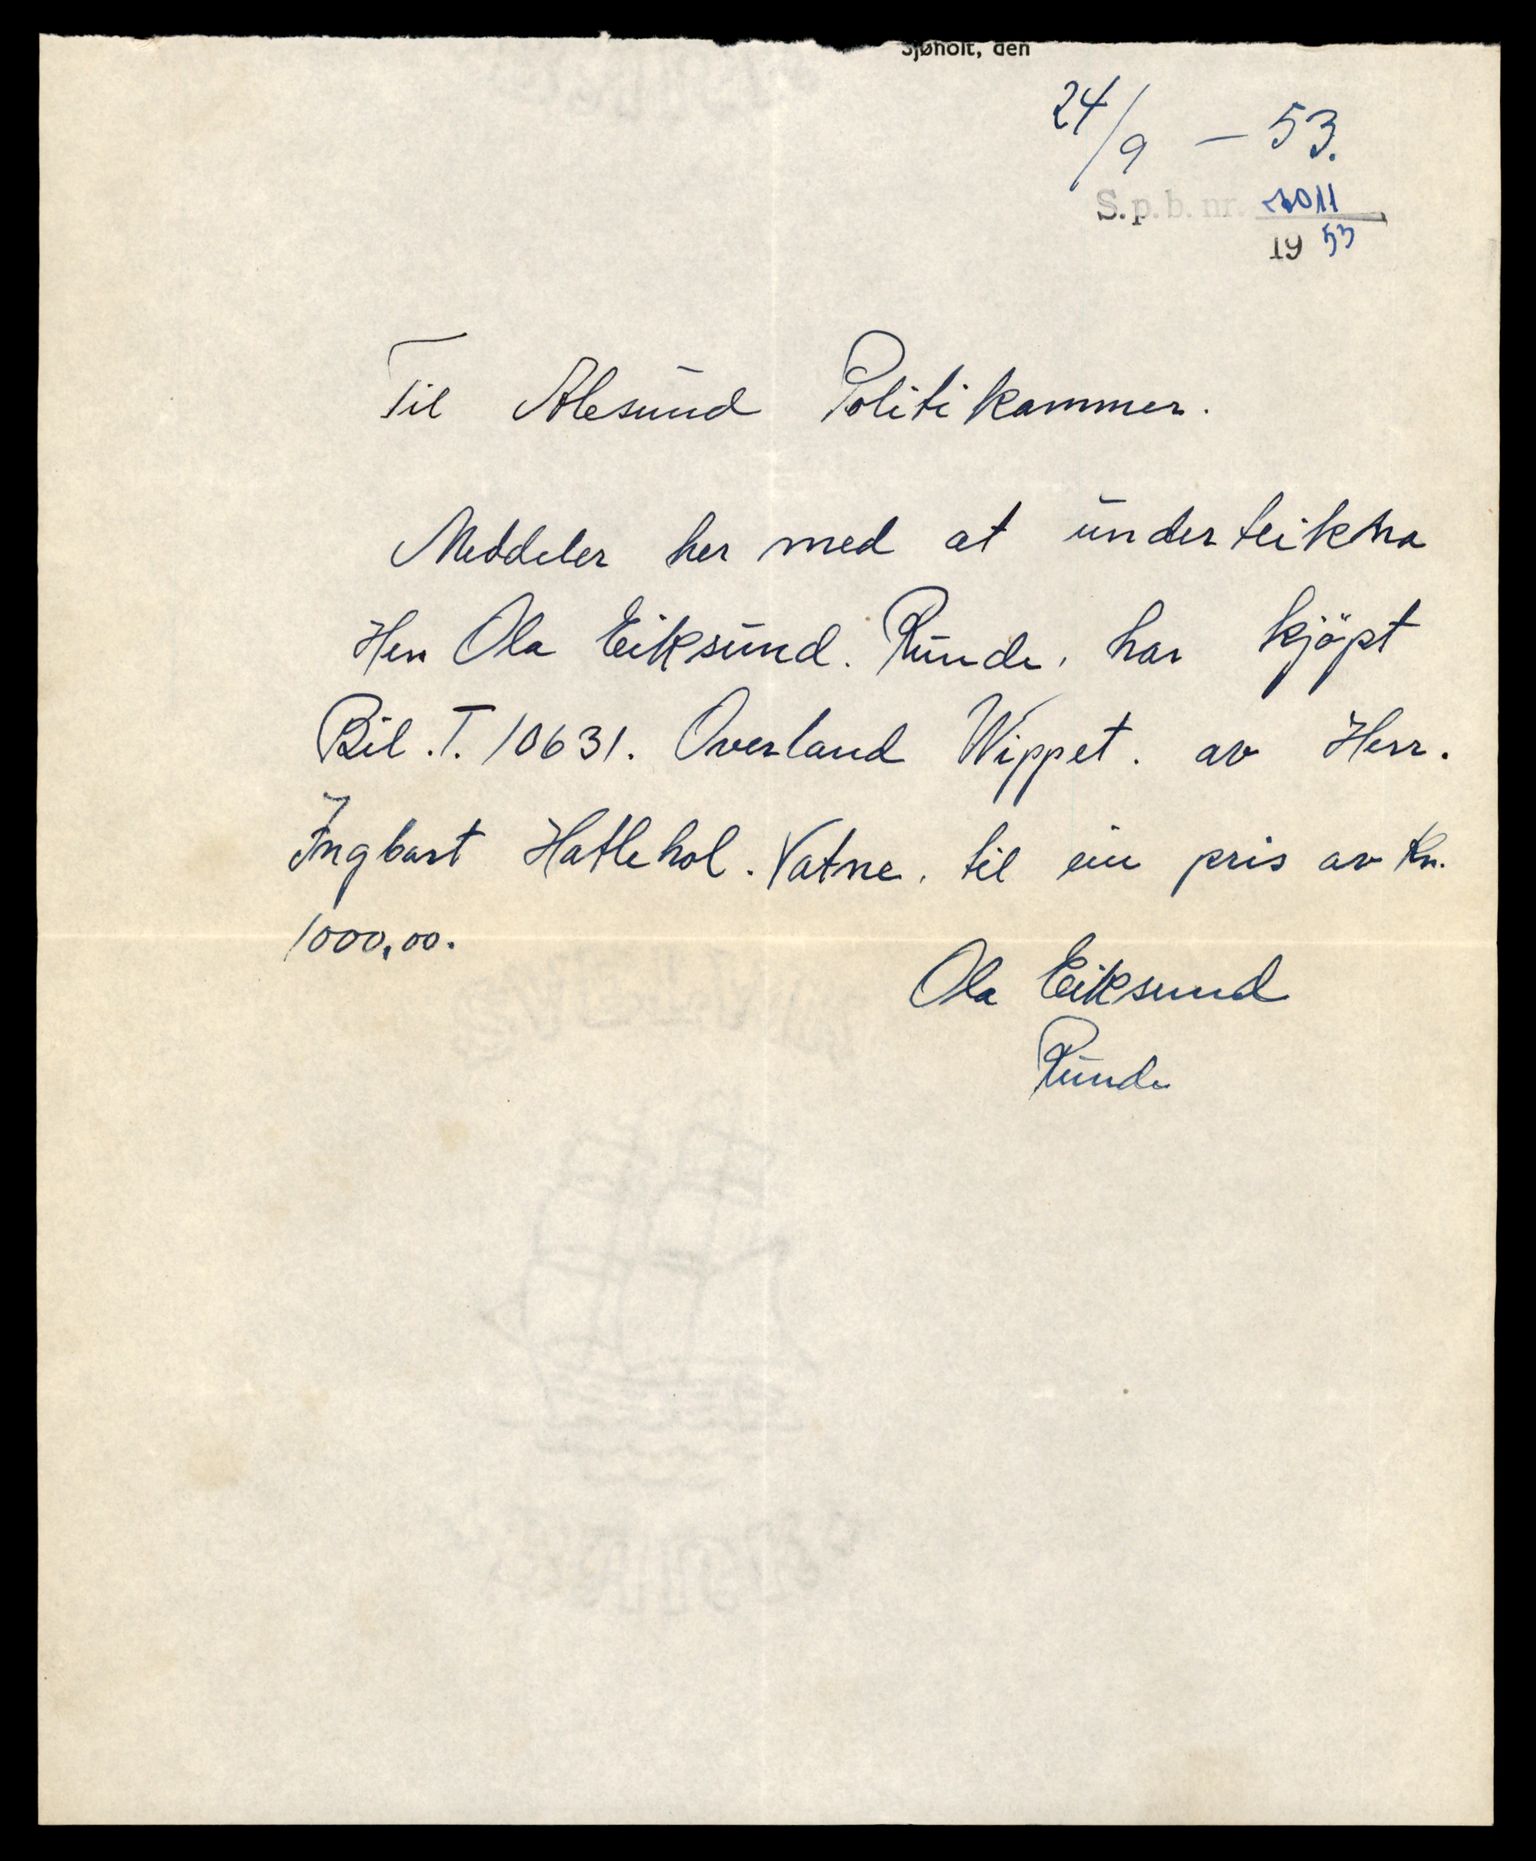 Sjøholt, den
24/9 – 53.
S.p.b. nr. 2011
19 53
Til Alesund Politikammer.
Meddeler her med at underteikna
Herr Ola Eiksund. Runde. har kjöpt
Bil. T. 10631. Overland Wippet. av Herr.
Ingbart Hatlehol. Vatne. til ein pris av Kr.
1000,00.
Ola Eiksund
Runde